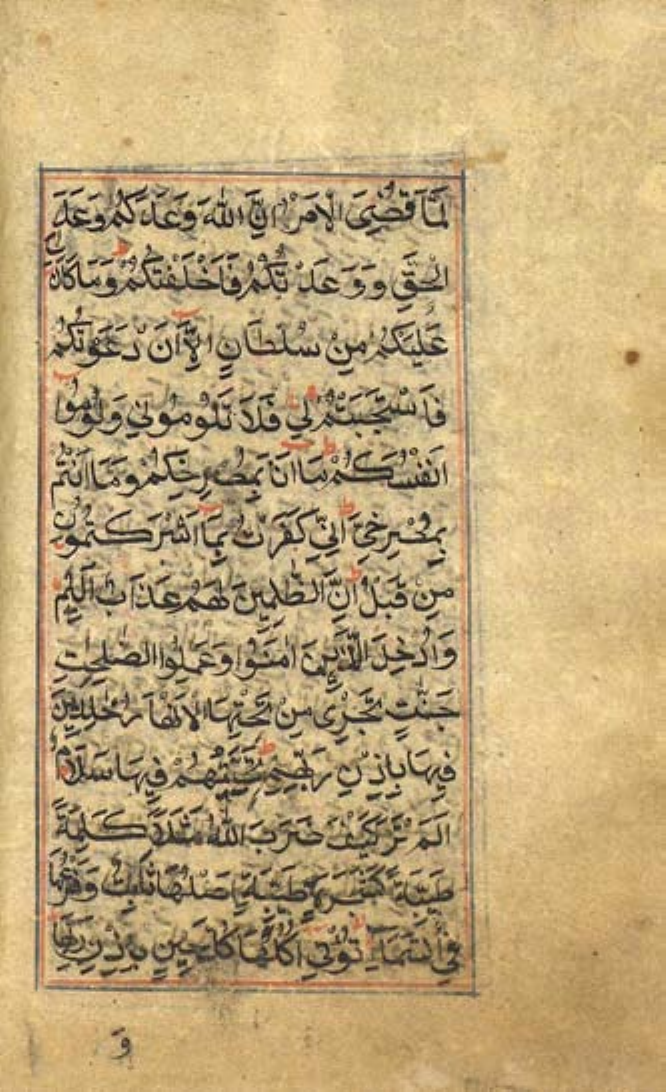 لَمَّا قُضِىَ الْاَمْرُ اِنَّ اللّٰهَ وَعَدَكُمْ وَعْدَ
الْحَقِّ وَوَعَدْتُّكُمْ فَاَخْلَفْتُكُمْ وَمَا كَانَ لِىَ
عَلَيْكُمْ مِنْ سُلْطَانٍ اِلَّا اَنْ دَعَوْتُكُمْ
فَاسْتَجَبْتُمْ لِي فَلَا تَلُومُونِي وَلُومُوا
اَنْفُسَكُمْ مَا اَنَا بِمُصْرِخِكُمْ وَمَا اَنْتُمْ
بِمُصْرِخِىَّ اِنِّى كَفَرْتُ بِمَا اَشْرَكْتُمُونِ
مِنْ قَبْلُ اِنَّ الظّٰلِمِينَ لَهُمْ عَذَابٌ اَلِيْمٌ
وَاُدْخِلَ الَّذِينَ اٰمَنُوا وَعَمِلُوا الصّٰلِحٰتِ
جَنّٰتٍ تَجْرِى مِنْ تَحْتِهَا الْاَنْهَارُ خٰلِدِينَ
فِيهَا بِاِذْنِ رَبِّهِمْ تَحِيَّتُهُمْ فِيهَا سَلَامٌ
اَلَمْ تَرَ كَيْفَ ضَرَبَ اللّٰهُ مَثَلًا كَلِمَةً
طَيِّبَةً كَشَجَرَةٍ طَيِّبَةٍ اَصْلُهَا ثَابِتٌ وَفَرْعُهَا
فِي السَّمَاءِ تُؤْتِي اُكُلَهَا كُلَّ حِينٍ بِاِذْنِ رَبِّهَا
وَ